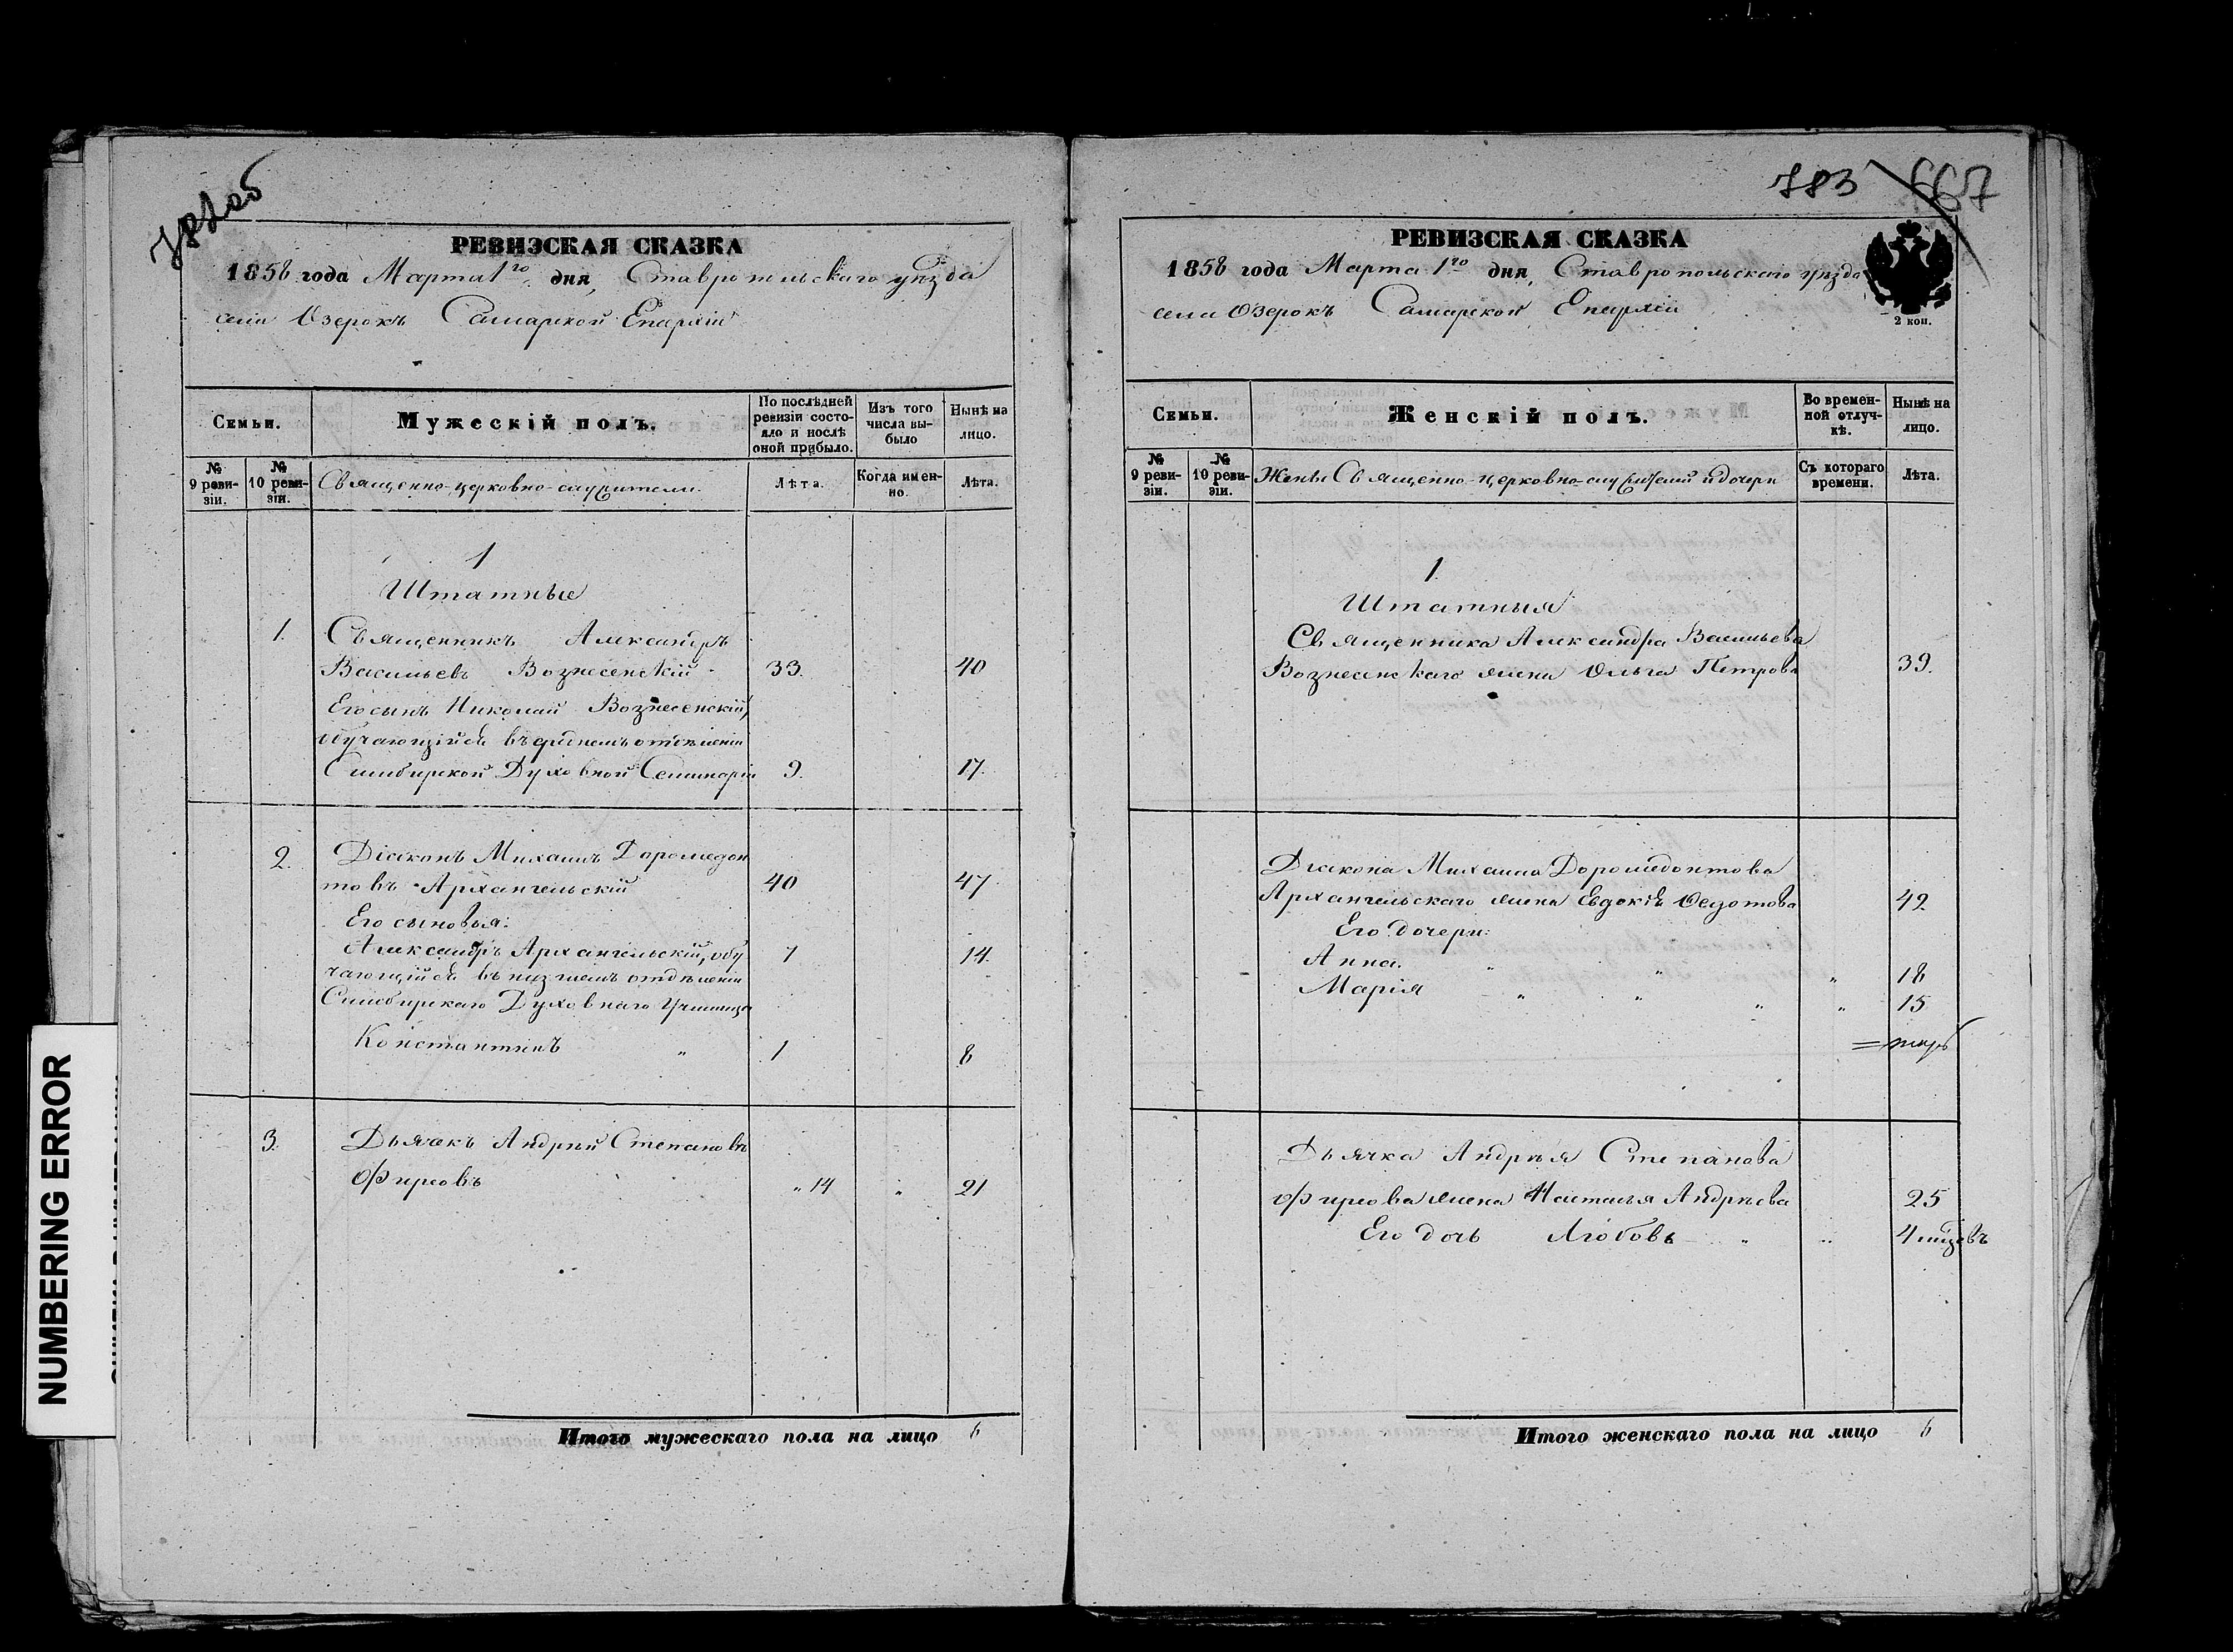 782об
РЕВИЗСКАЯ СКАЗКА
1858 года Марта 1го дня, Ставропольскаго уѣзда
села Озерокъ Самарской Епархіи
Семьи.
Мужескій полъ.
По послѣдней ревизіи состояло и послѣ оной прибыло.
Изъ того числа выбыло
Нынѣ на лицо.
№ 9 ревизіи.
№ 10 ревизіи.
Священно-церковно-служители.
Лѣта.
Когда именно.
Лѣта.
1
Штатные
1. Священникъ Александръ
Васильевъ Вознесенскій 33. 40
Его сынъ Николай Вознесенскій,
обучающійся въ среднемъ отдѣленіи
Симбирской Духовной Семинаріи 9. 17.
2. Діаконъ Михаилъ Доромедон
товъ Архангельскій 40 47
Его сыновья:
Александръ Архангельскій, обу 7 14.
чающійся въ низшемъ отдѣленіи
Симбирскаго Духовнаго Училища
Константинъ " 1 8
3. Дьячекъ Андрей Степановъ
" 14 " 21
Итого мужескаго пола на лицо 6
783 667
РЕВИЗСКАЯ СКАЗКА
1858 года Марта 1го дня, Ставропольскаго уѣзда
села Озерокъ Самарской Епархіи
2 коп.
Семьи.
Женскій полъ.
Во временной отлучкѣ.
Нынѣ на лицо.
№ 9 ревизіи.
№ 10 ревизіи.
Жены Священно-церковно-служителей и дочери
Съ котораго времени.
Лѣта.
1.
Штатныя
Священника Александра Васильева
Вознесенскаго жена Ольга Петрова 39.
Діакона Михаила Доромедонтова
Архангельскаго жена Евдокія Федотова 42
Его дочери:
Анна. " " " 18
Марія " " " " 15
Дьячка Андрея Степанова
жена Наталья Андрѣева 25
Его дочь Любовь " " 4
Итого женскаго пола на лицо 6
NUMBERING ERROR